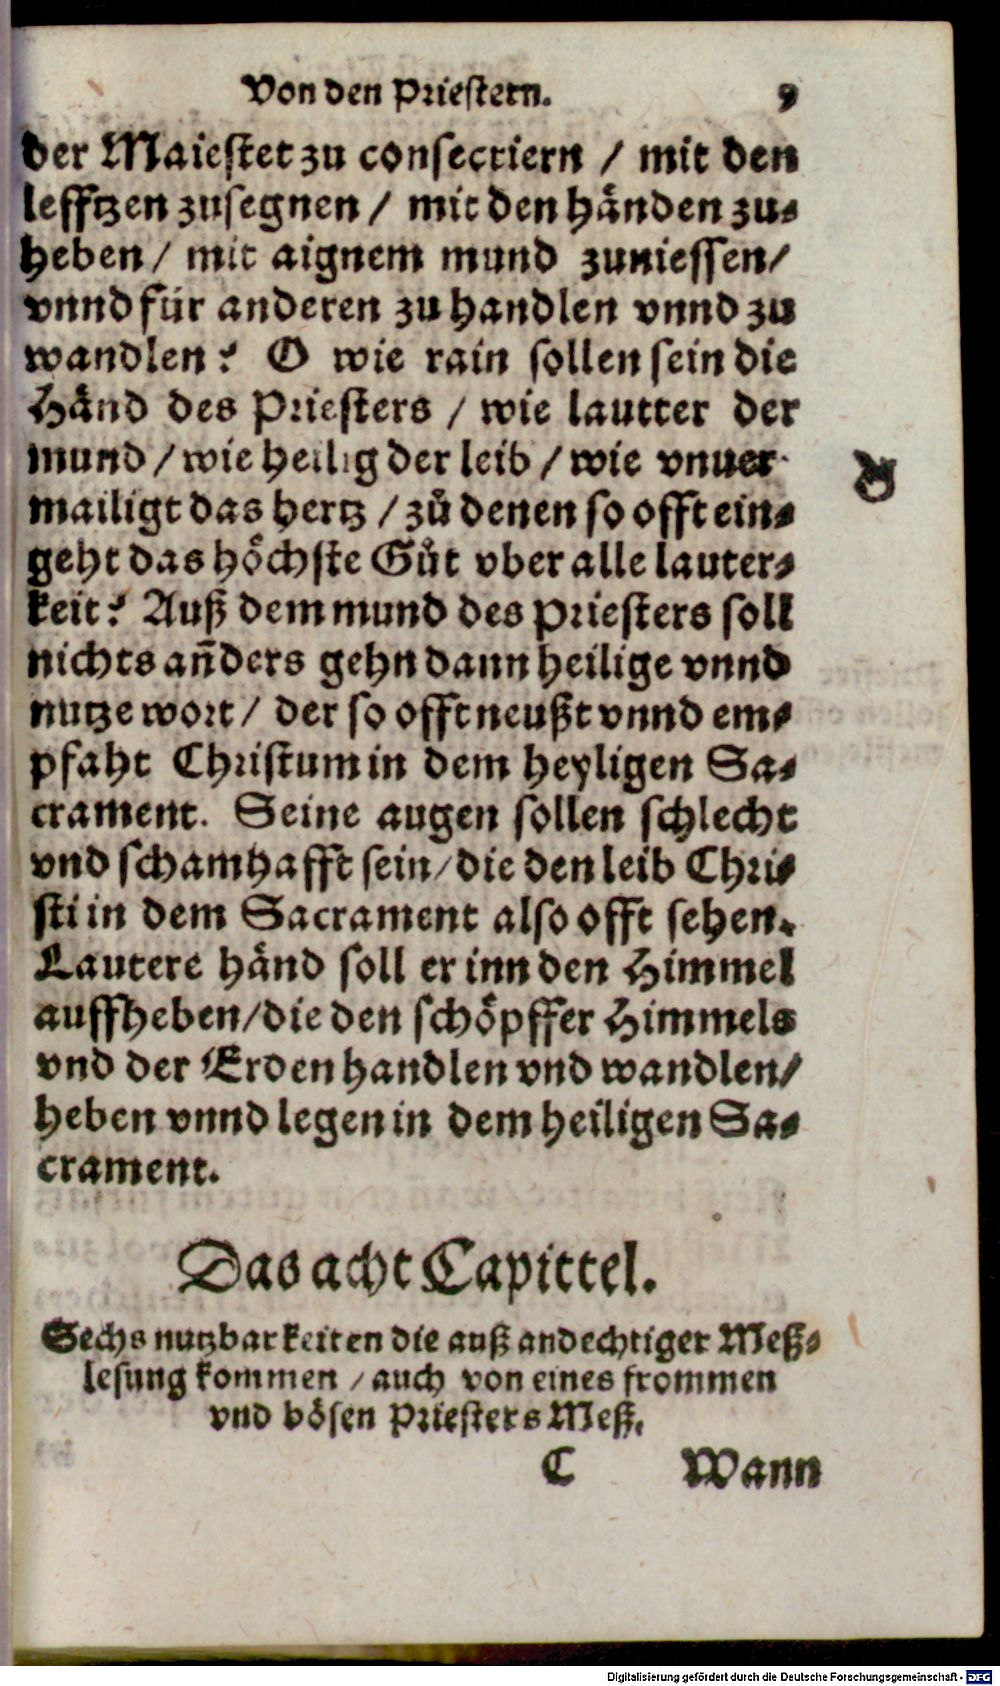 Von den Priestern. 9
der Maiestet zu consecriern / mit den
lefftzen zusegnen / mit den händen zu-
heben / mit aignem mund zuniessen /
vnnd für anderen zu handlen vnnd zu
wandlen? O wie rain sollen sein die
Händ des Priesters / wie lautter der
mund / wie heilig der leib / wie vnuer-
mailigt das hertz / zů denen so offt ein-
geht das höchste Gůt vber alle lauter-
keit? Auß dem mund des Priesters soll
nichts an̄ders gehn dann heilige vnnd
nutze wort / der so offt neußt vnnd em-
pfaht Christum in dem heyligen Sa-
crament. Seine augen sollen schlecht
vnd schamhafft sein / die den leib Chri-
sti in dem Sacrament also offt sehen.
Lautere händ soll er inn den Himmel
auffheben / die den schöpffer Himmels
vnd der Erden handlen vnd wandlen /
heben vnnd legen in dem heiligen Sa-
crament.
Das acht Capittel.
Sechs nutzbarkeiten die auß andechtiger Meß-
lesung kommen / auch von eines frommen
vnd bösen Priesters Meß.
C Wann
Digitalisierung gefördert durch die Deutsche Forschungsgemeinschaft - DFG